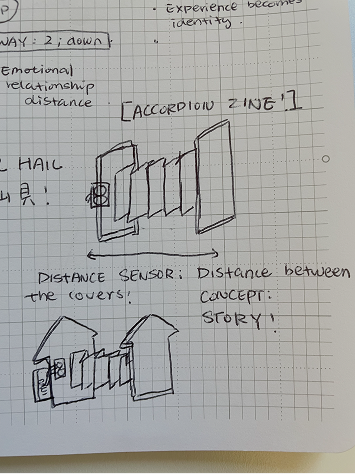 P
• Experience becomes
identity.
WAY: 2; down
•
Emotional
relationship
distance
[ACCORDION ZINE!]
HAIL
貝!
DISTANCE SENSOR: Distance between
the covers!
CONCEPT:
STORY!